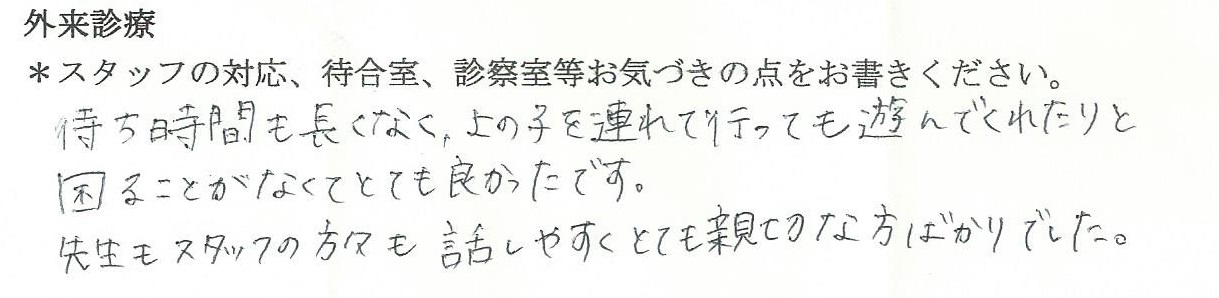 外来診療
＊スタッフの対応、待合室、診察室等お気づきの点をお書きください。
待ち時間も長くなく、上の子を連れて行っても遊んでくれたりと
困ることがなくてとても良かったです。
先生もスタッフの方々も話しやすくとても親切な方ばかりでした。